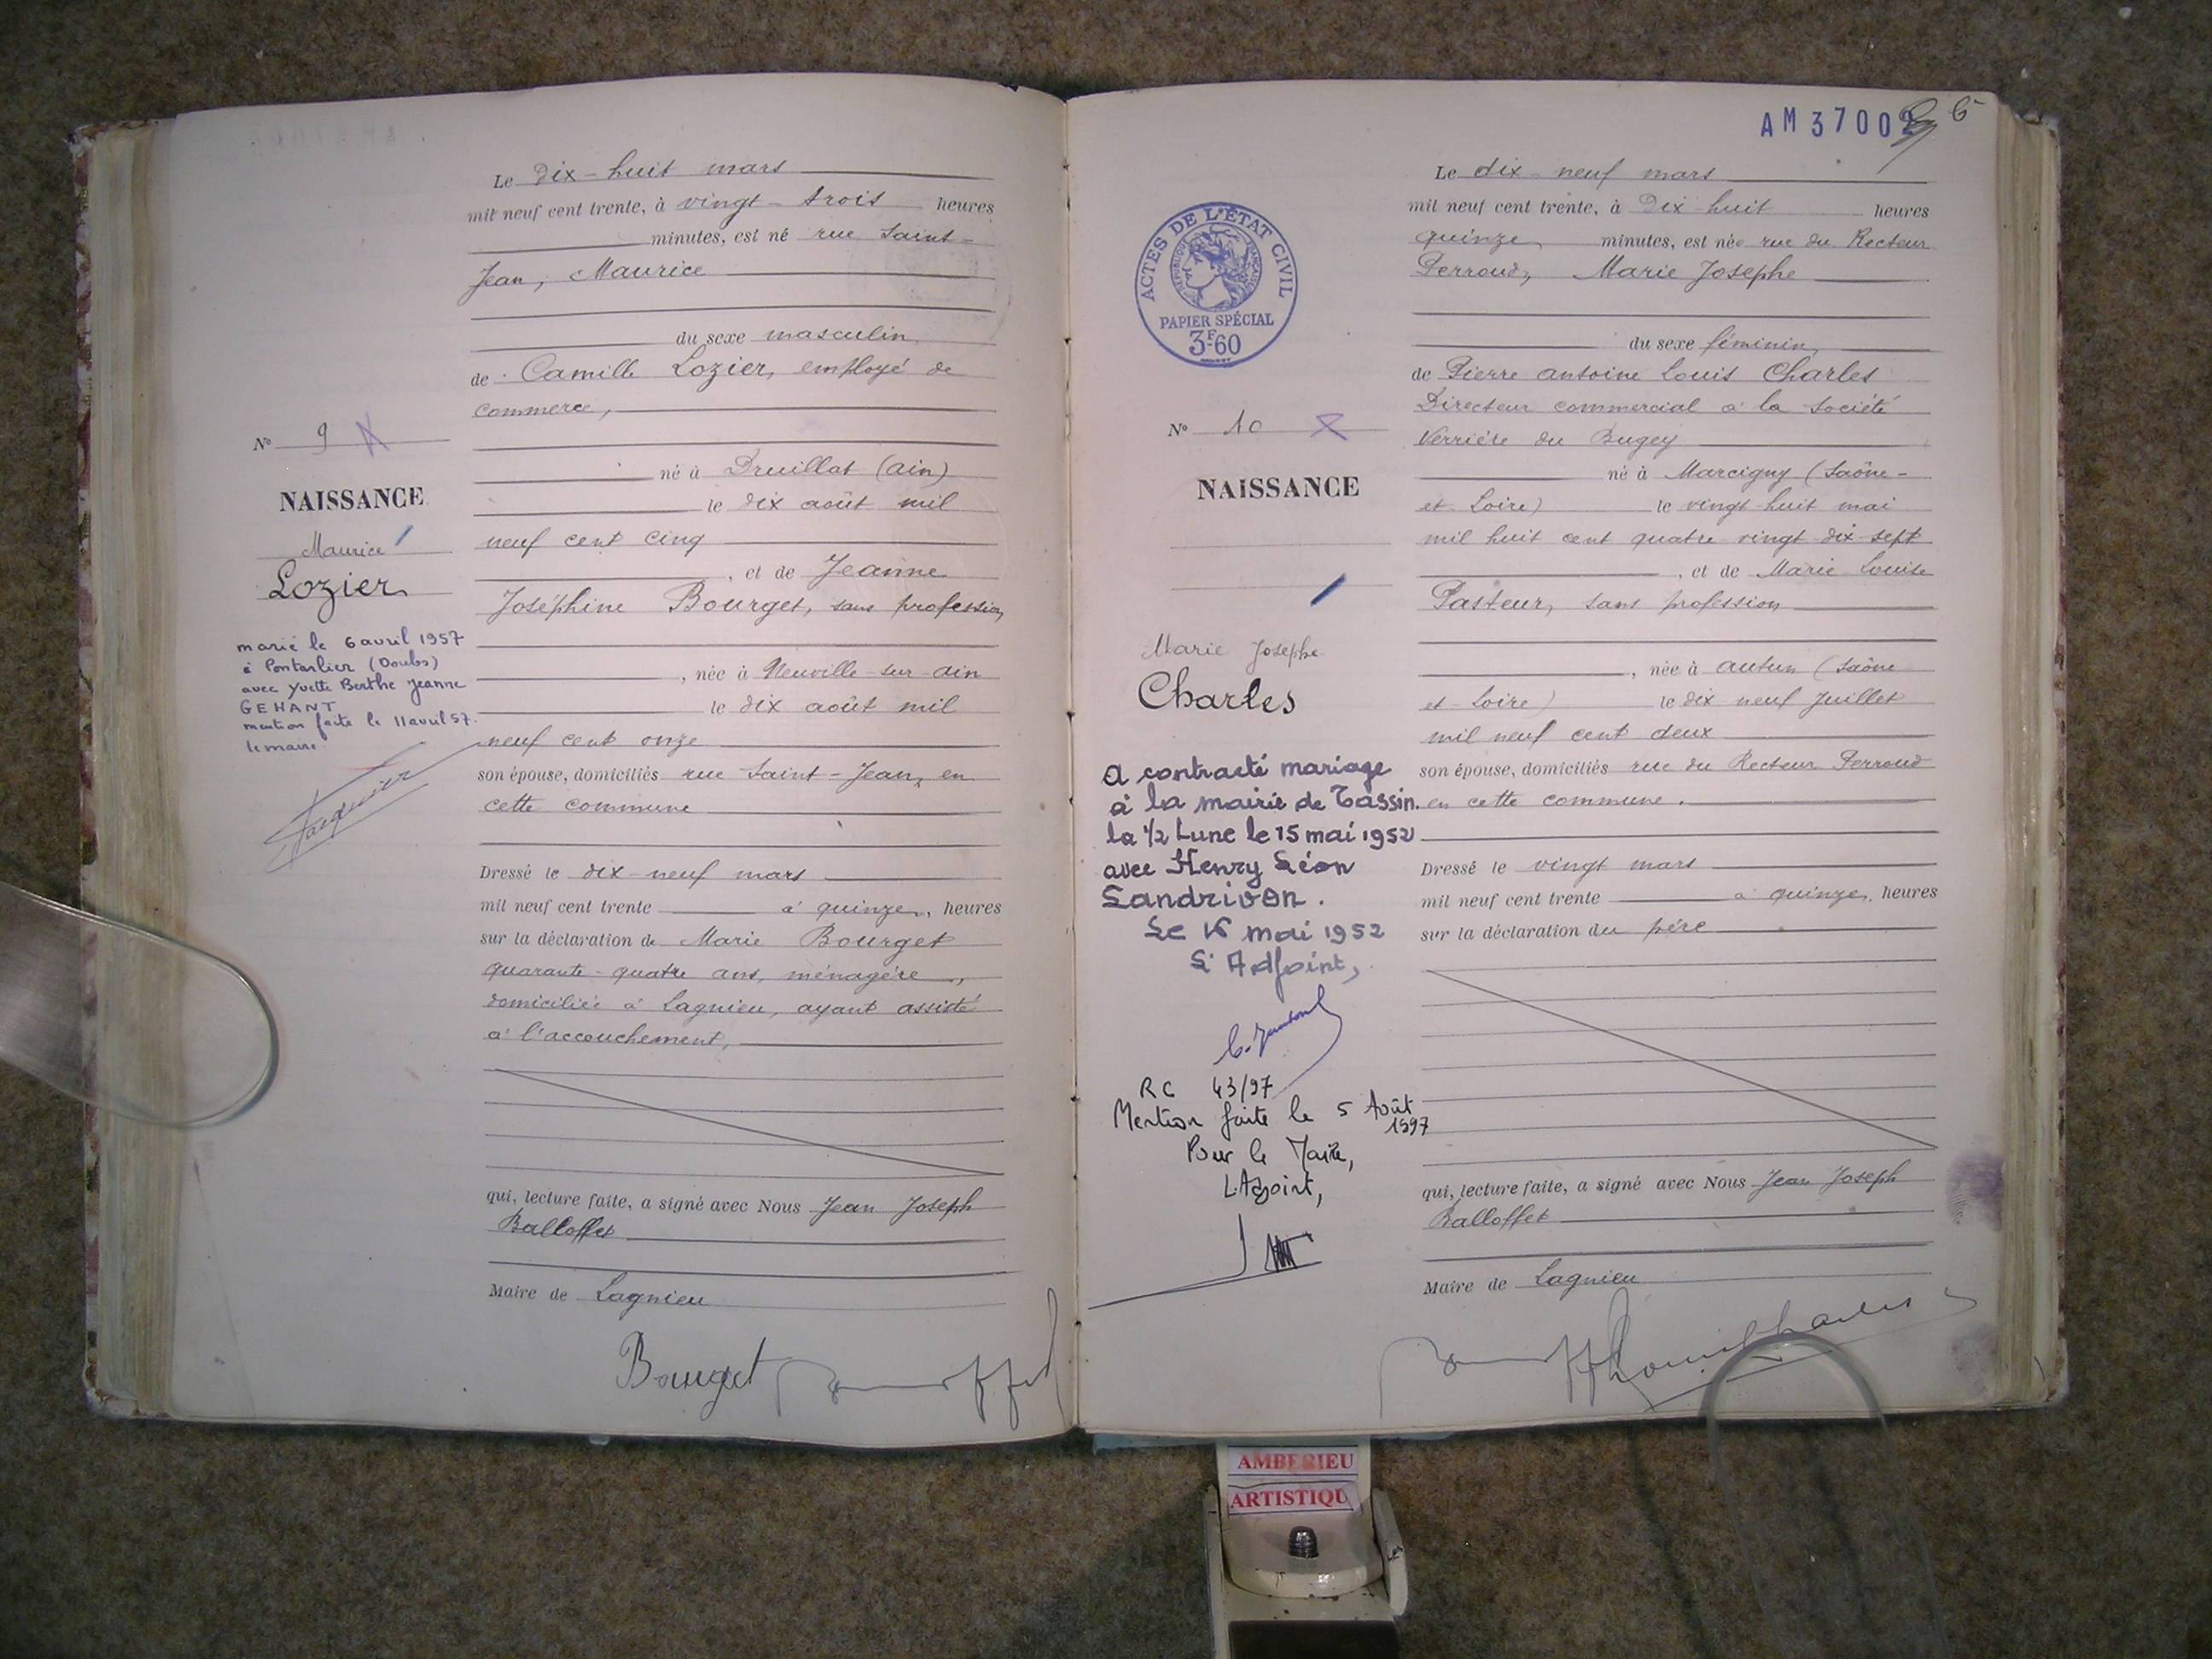 Le Dix-huit mars
mil neuf cent trente, à vingt-trois heures
minutes, est né rue Saint-
Jean, Maurice
du sexe masculin,
de Camille Lozier, employé de
commerce,
né à Druillat (Ain)
le dix août mil
neuf cent cinq
, et de Jeanne
Joséphine Bourget, sans profession,
, née à Neuville-sur-Ain
le dix août mil
neuf cent onze
son épouse, domiciliés rue Saint-Jean, en
cette commune
Dressé le dix-neuf mars
mil neuf cent trente à quinze, heures
sur la déclaration de Marie Bourget
quarante-quatre ans, ménagère,
domiciliée à Lagnieu, ayant assisté
à l'accouchement,
qui, lecture faite, a signé avec Nous Jean Joseph
Balloffet
Maire de Lagnieu
Bourget
N° 9
NAISSANCE
Maurice
Lozier
marié le 6 avril 1957
à Pontarlier (Doubs)
avec Yvette Berthe Jeanne
GEHANT
mention faite le 11 avril 57.
le maire.
AM 3700
6
ACTES DE L'ÉTAT CIVIL
RÉPUBLIQUE FRANÇAISE
PAPIER SPÉCIAL
3F60
N° 10
NAISSANCE
Marie Josephe
Charles
a contracté mariage
à la mairie de Tassin
la 1/2 Lune le 15 mai 1952
avec Henry Léon
Sandrivon.
Le 16 mai 1952
L'Adjoint,
RC 43/97
Mention faite le 5 Août
1997
Pour le Maire,
L'Adjoint,
Le dix-neuf mars
mil neuf cent trente, à Dix-huit heures
quinze minutes, est née rue du Recteur
Perroud, Marie Josephe
du sexe féminin,
de Pierre Antoine Louis Charles
Directeur commercial à la Société
Verrière du Bugey
né à Marcigny (Saône-
et-Loire) le vingt-huit mai
mil huit cent quatre vingt-dix-sept
, et de Marie-Louise
Pasteur, sans profession
, née à Autun (Saône
et-Loire) le dix-neuf Juillet
mil neuf cent deux
son épouse, domiciliés rue du Recteur Perroud
en cette commune.
Dressé le vingt mars
mil neuf cent trente à quinze, heures
sur la déclaration du père
qui, lecture faite, a signé avec Nous Jean Joseph
Balloffet
Maire de Lagnieu
Louis Charles
AMBERIEU
ARTISTIQU